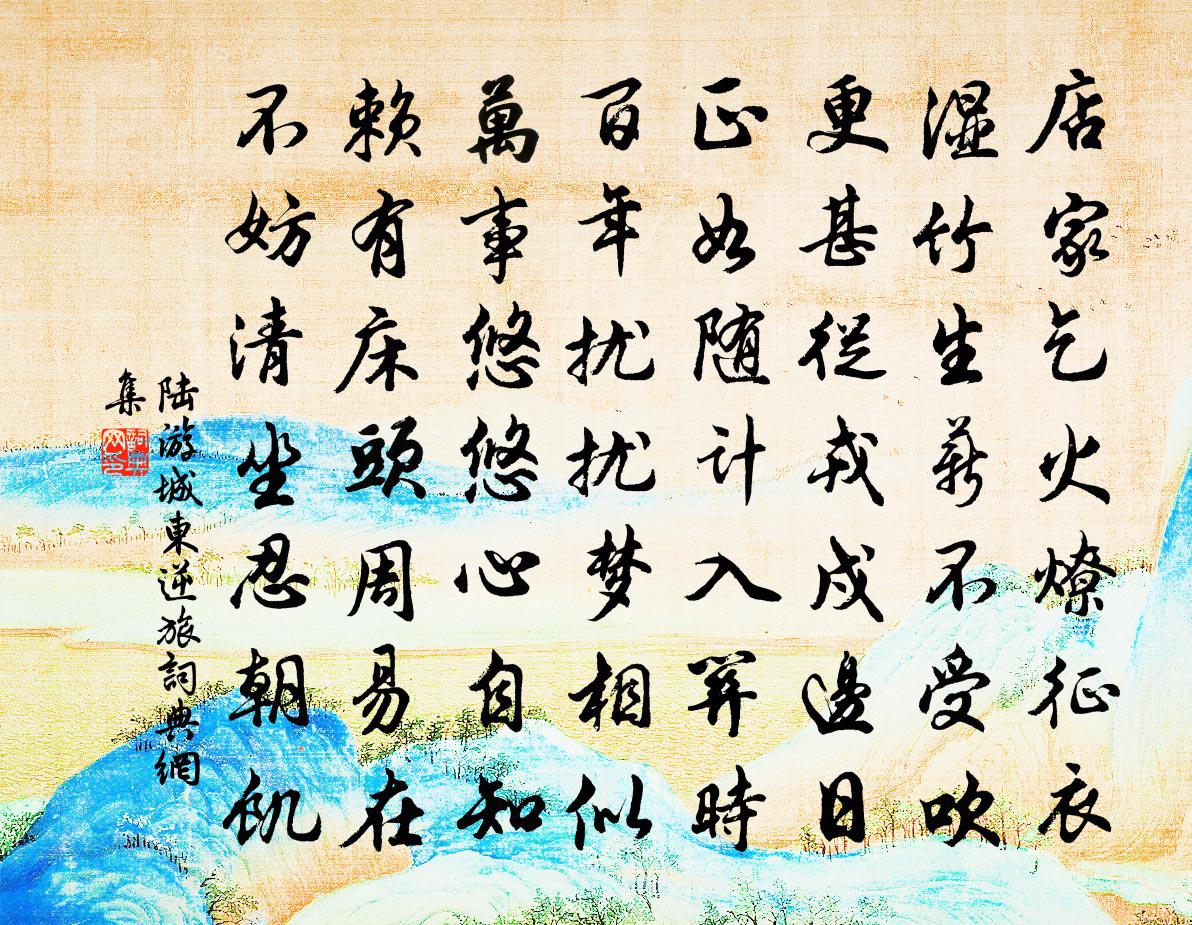 店家乞火燎征衣
湿竹生薪不受吹
更甚從戎戍邊日
正如随計入關時
百年扰扰梦相似
萬事悠悠心自知
賴有床頭周易在
不妨清坐忍朝飢
陆游城東逆旅詞典網
集